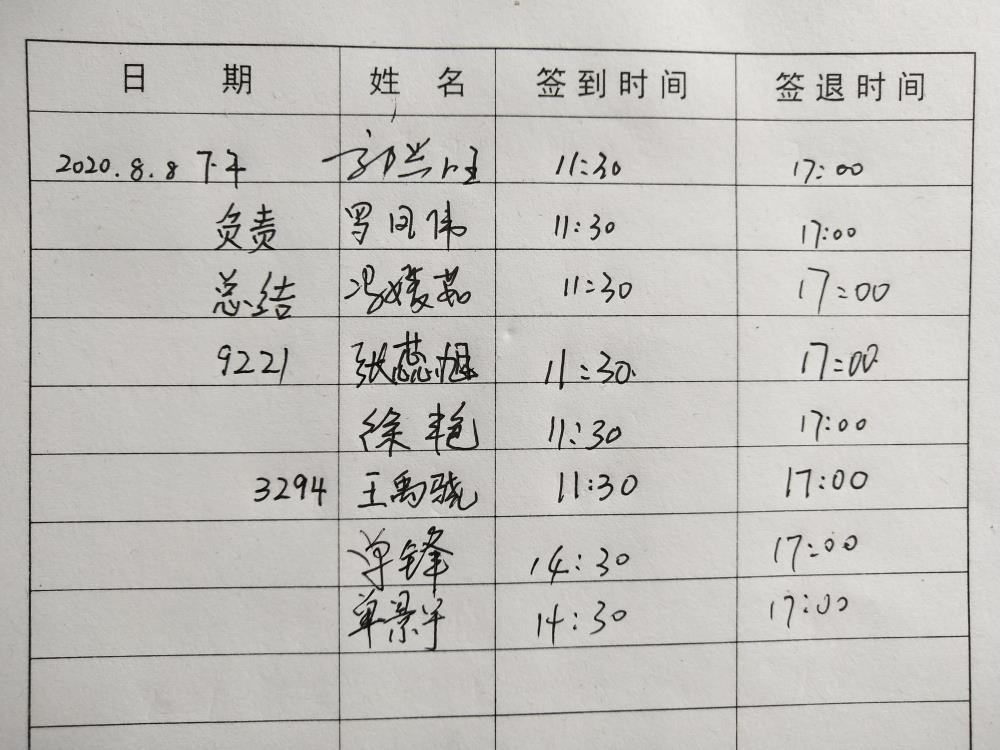 日 期 姓 名 签到时间 签退时间
2020.8.8 下午 11:30 17:00
负责 罗凤伟 11:30 17:00
总结 冯媛茹 11:30 17:00
9221 张蕊旭 11:30 17:00
徐艳 11:30 17:00
3294 王禹骁 11:30 17:00
单锋 14:30 17:00
单景宇 14:30 17:00